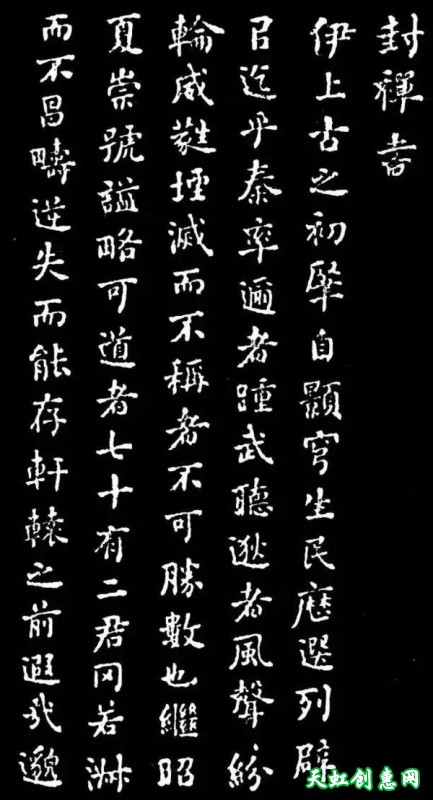 封禪書
伊上古之初肇自顥穹生民歷選列辟
以迄乎秦率邇者踵武聽逖者風聲紛
輪威蕤堙滅而不稱者不可勝數也繼昭
夏崇號謚略可道者七十有二君罔若淑
而不昌疇逆失而能存軒轅之前遐哉邈
天虹创惠网